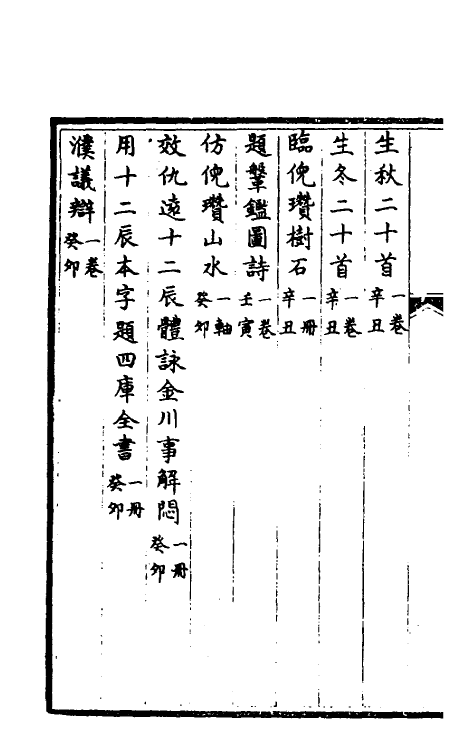 生秋二十首一卷辛丑
生冬二十首一卷辛丑
臨倪瓚樹石一冊辛丑
題鞶鑑圖詩一卷壬寅
仿倪瓚山水一軸癸卯
效仇遠十二辰體詠金川事解悶一冊癸卯
用十二辰本字題四庫全書一冊癸卯
濮議辯一卷癸卯